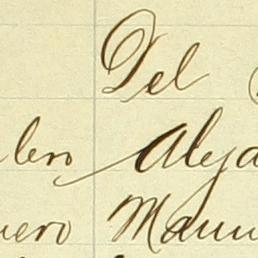 Del
lero Aleja
uero Manu